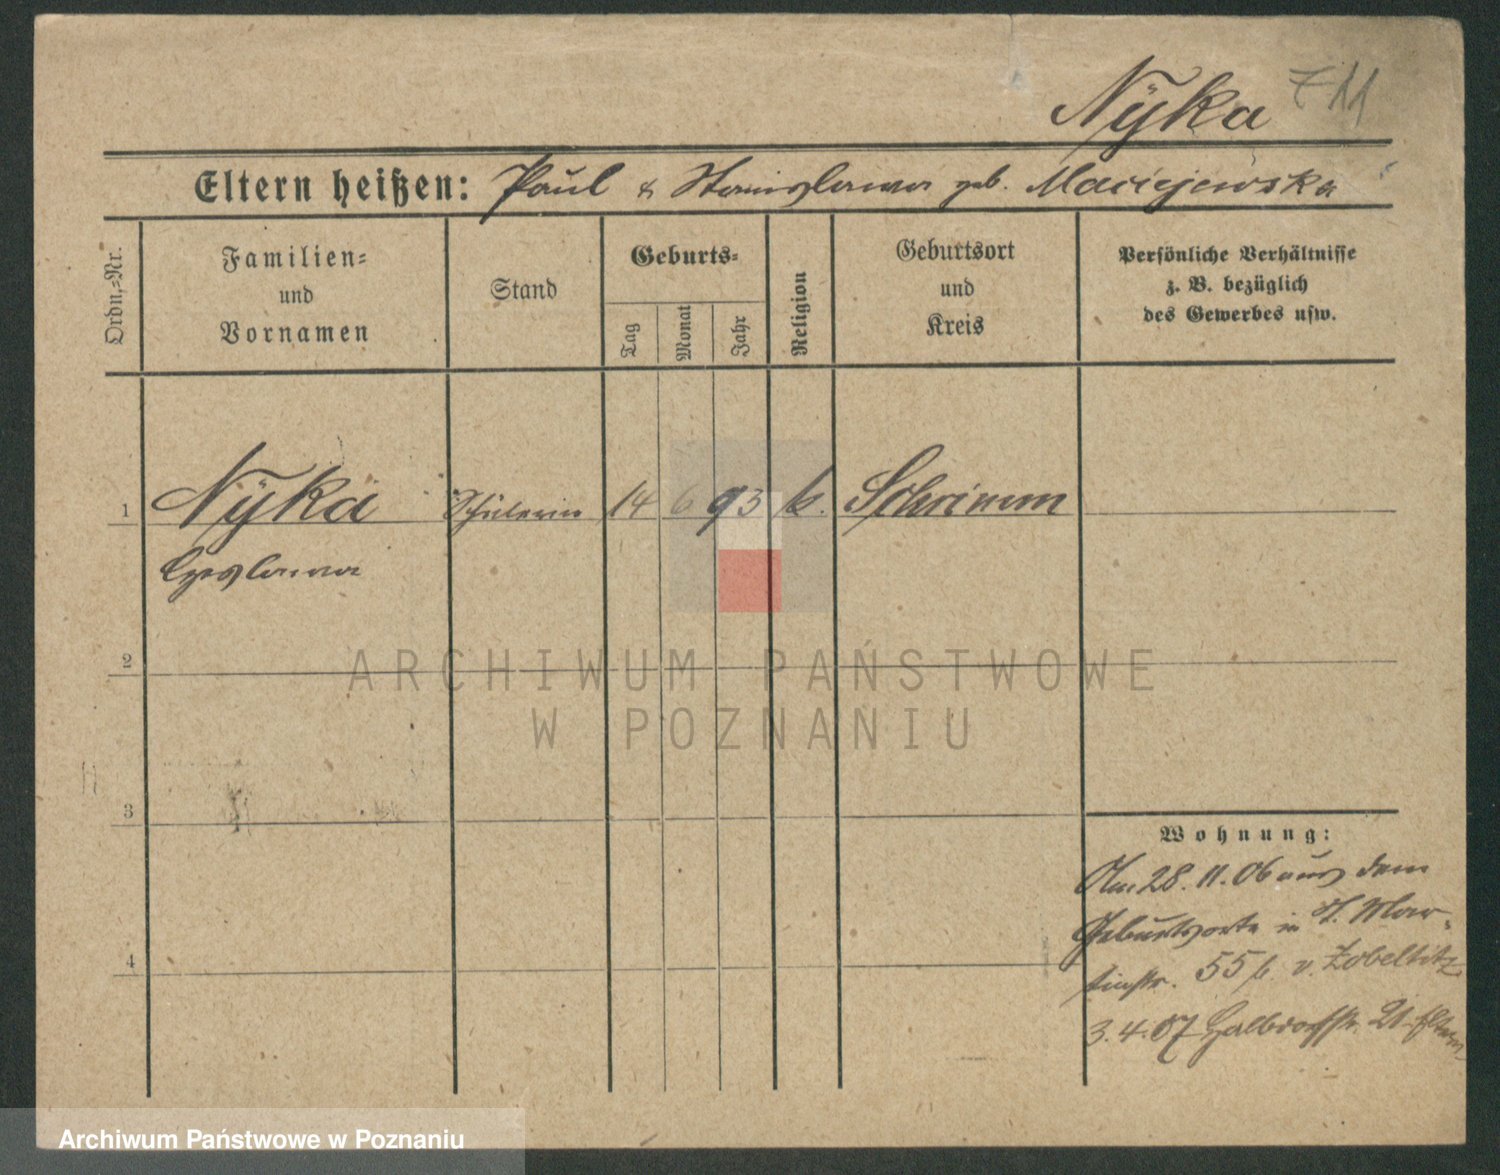 Nÿka 711
Eltern heißen: Paul & Stanislawa geb. Maciejewska
Ordn.-Nr.
Familien-
und
Vornamen
Stand
Geburts-
Tag
Monat
Jahr
Religion
Geburtsort
und
Kreis
Persönliche Verhältnisse
z. B. bezüglich
des Gewerbes usw.
1 Nÿka Schülerin 14 6 93 k. Schrimm
Czeslawa
2
ARCHIWUM PAŃSTWOWE
W POZNANIU
3
Wohnung:
Am 28. 11. 06 aus dem
Geburtsorte in St. Mar-
tinstr. 55 b. v. Zobeltitz
4
3. 4. 07 Halbdorfstr. 21 Eltern
Archiwum Państwowe w Poznaniu